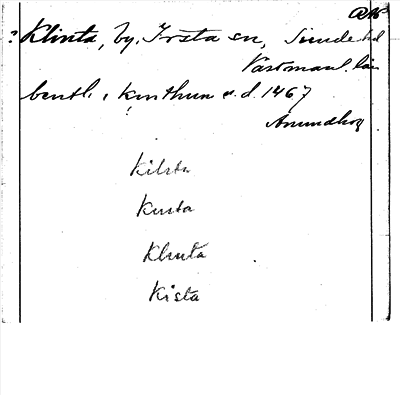 ? Klinta, by, Irsta sn, Siende hd
Västmanl. län
kinthum v. d. 1467
Anundhog
Kilsta
Kusta
Klinta
Kista